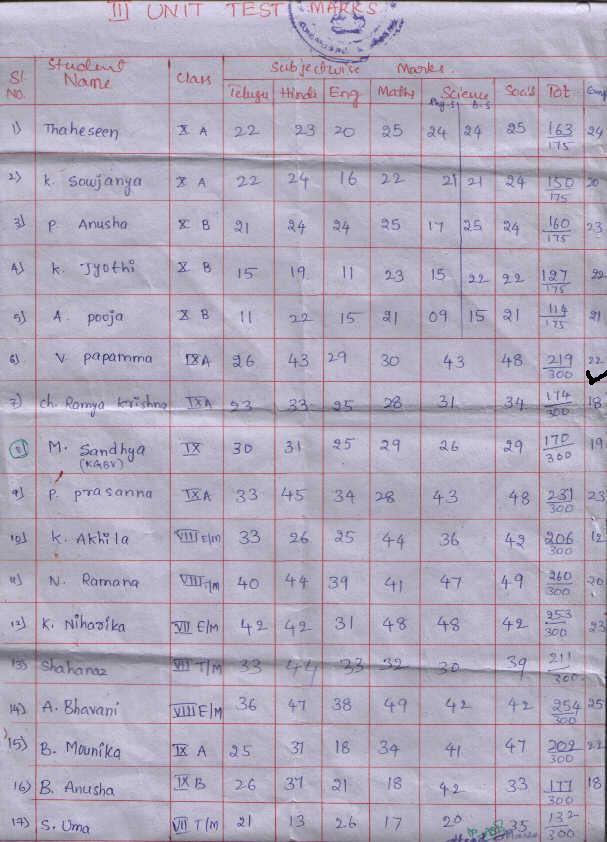 III UNIT TEST MARKS
Sl. No. Student Name Class Subjectwise Marks.
Telugu Hindi Eng Maths Science Phy-S B-S Soc.S Tot
1) Thaheseen X A 22 23 20 25 24 24 25 163/175 24
2) K. Sowjanya X A 22 24 16 22 21 21 24 150/175 20
3) P. Anusha X B 21 24 24 25 17 25 24 160/175 23
4) K. Jyothi X B 15 19 11 23 15 22 22 127/175 22
5) A. pooja X B 11 22 15 21 09 15 21 114/175 21
6) V. papamma IX A 26 43 29 30 43 48 219/300 22
7) ch. Ramya Krishna IX A 23 33 25 28 31 34 174/300 18
8) M. Sandhya (KGBV) IX 30 31 25 29 26 29 170/300 19
9) P. prasanna IX A 33 45 34 28 43 48 231/300 23
10) K. Akhila VIII E/M 33 26 25 44 36 42 206/300 12
11) N. Ramana VIII T/M 40 44 39 41 47 49 260/300 20
12) K. Niharika VII E/M 42 42 31 48 48 42 253/300 23
13) Shahanaz VII T/M 33 44 33 32 30 39 211/300
14) A. Bhavani VIII E/M 36 47 38 49 42 42 254/300 25
15) B. Mounika IX A 25 37 18 34 41 47 202/300 22
16) B. Anusha IX B 26 37 21 18 42 33 177/300 18
17) S. Uma VII T/M 21 13 26 17 20 35 132/300